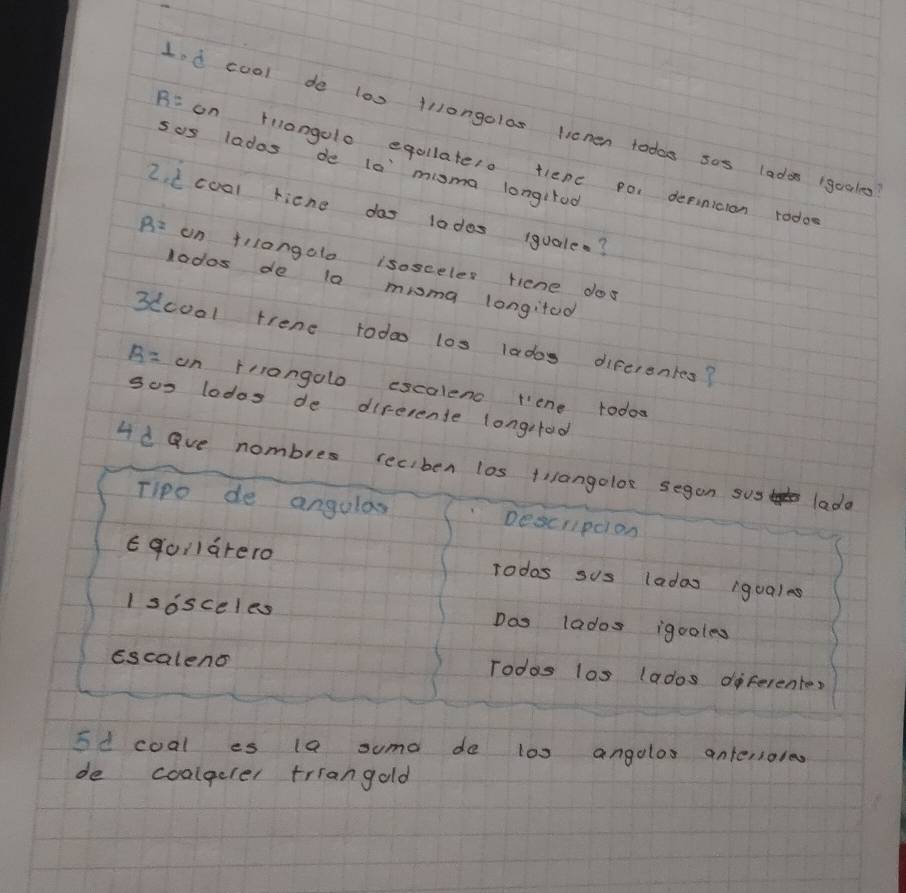 1.¿ cual de los triangolos tienen todos sos lados iguales?
R= on triangulo equilatero tiene por definicion todos
sus lados de la misma longitud
2.¿ cual tiene dos lados iguales?
R= un triangolo isosceles tiene dos
lados de la misma longitud
3¿cual tiene todos los lados diferentes?
R= un triangulo escaleno tiene todos
sus lados de diferente longitud
4¿ Que nombres reciben los triangolos segun sus lado
Tipo de angulos
Descripcion
Equilátero
Todos sus lados iguales
Isósceles
Dos lados iguales
escaleno
Todos los lados diferentes
5¿ cual es la suma de los angulos anteriores
de coalquier triangulo